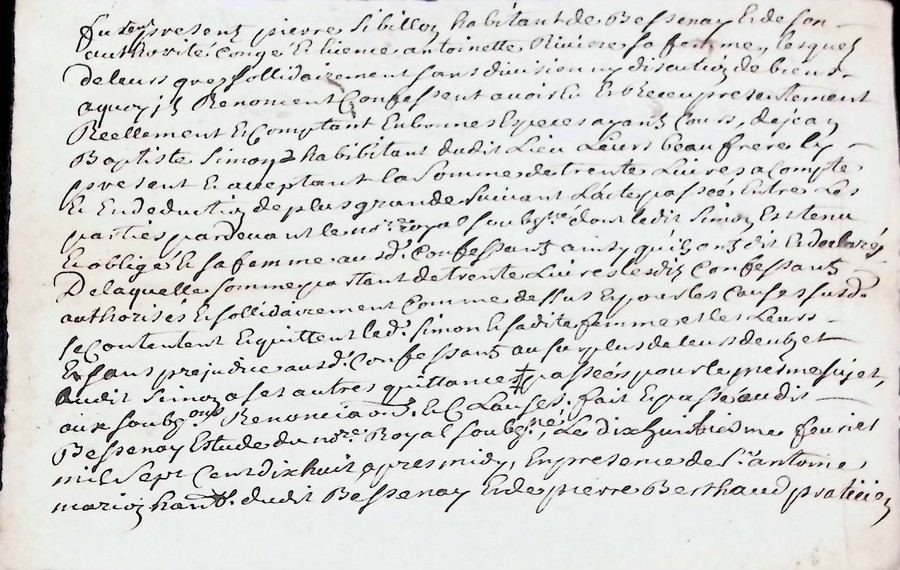 fut présent pierre Sibillon habitant de Bessenay & de son
authorité Congé & licence antoinette Riviere sa femme, lesquels
de leurs gres sollidairement sans division ny discution de biens
a quoy ils Renoncent Confessent avoir Eu Et Receu présentement
Réellement & Comptant En bonnes Especes ayant Cours, de jean
Baptiste Simon habibitant dudit Lieu Leurs beau frere Icy
présent & acceptant la Somme de trente Livres a Compte
Et En déduction de plus grande Suivant L'acte passée Entre Les
parties pardevant le nore Royal soubzne dont ledit Simon Est tenu
Et obligé & sa femme ausd. Confessants ainsy qu'ils ont dit & déclarés,
De laquelle somme partant de trente Livres lesdits Confessants
authorisés & sollidairement Comme dessus Et pour les Causes susd.
se Contentent Et quittent led. Simon & sadite femme et les Leurs
Et sans prejudice ausd. Confessants au surplus de leurs deubz et
audit Simon a ses autres quittances passées pour le mesme sujet,
aux soubgons Renonciaons. & Clauses. fait Et passé audit
Bessenay Estude du nore Royal soubzné, Le dix huitiesme fevrier
mil Sept Cent dix huit apres midy, En presence de Sr. antoine
marion hant. dudit Bessenay Et de pierre Berthaud praticien